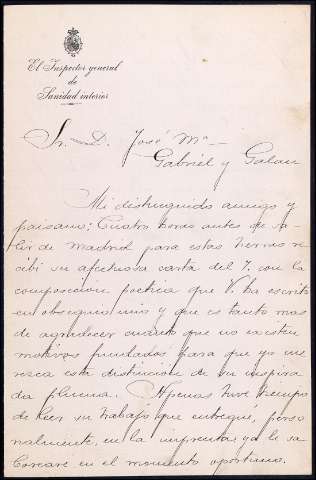 El Inspector general
de
Sanidad interior
Sr. D. José Mª
Gabriel y Galan
Mi distinguido amigo y
paisano: Cuatro horas antes de sa-
lir de Madrid para estas tierras re
cibi su afectuosa carta del 7. con la
composición poetica que V. ha escrito
en obsequio mio y que es tanto mas
de agradecer cuanto que no existen
motivos fundados para que yo me
rezca esta distincion de su inspira
da pluma. Apenas tuve tiempo
de leer su trabajo que entregué, perso
nalmente, en la imprenta ya le sa
borearé en el momento oportuno.